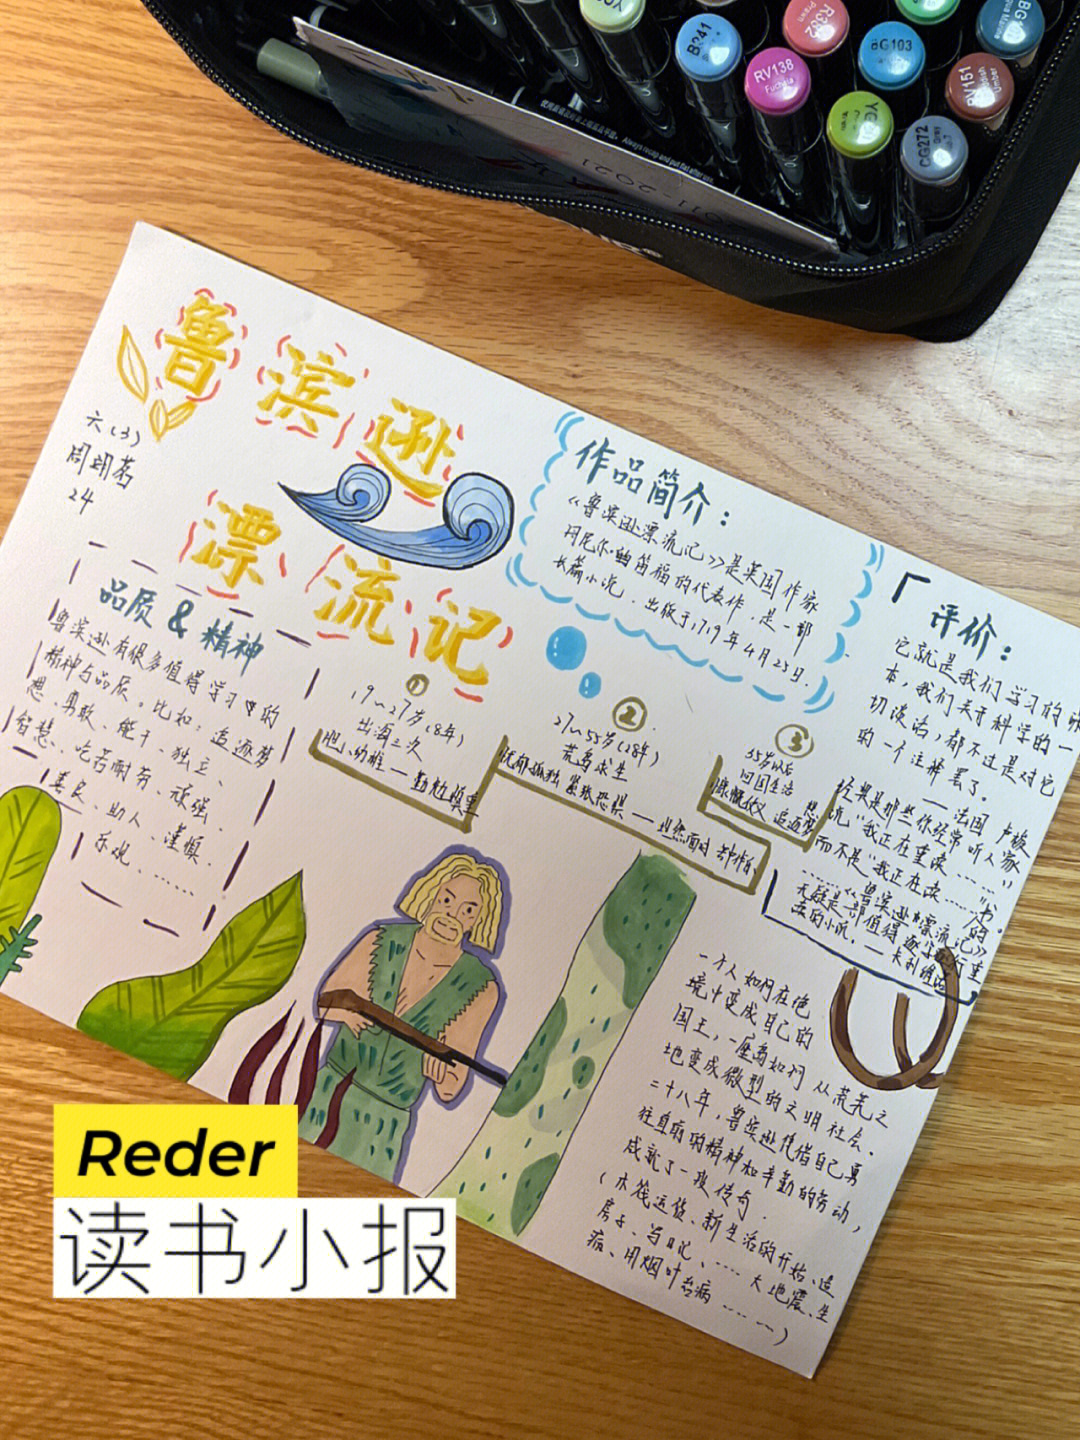 B241
R352
RV138
Fuchsia
BG103
RV151
CG272
Always recap and put flat after use.
2011-2021
鲁滨逊
漂流记
六(3)
24
品质 & 精神
鲁滨逊有很多值得学习的
精神与品质。比如：追逐梦
想、勇敢、能干、独立、
智慧、吃苦耐劳、顽强、
善良、助人、谨慎、
乐观、……
作品简介：
《鲁滨逊漂流记》是英国作家
丹尼尔·笛福的代表作，是一部
长篇小说，出版于1719年4月25日.
①
19~27岁(8年)
出海三次
②
27~55岁(28年)
荒岛求生
忧郁孤独 紧张恐惧——坦然面对
③
55岁以后
回国生活
慷慨仗义 追逐梦想
「 评价：
它就是我们学习的
本，我们关于科学的一
切谈话，都不过是对它
的一个注释罢了。
——法国 卢梭
经典是那些你经常听人家
说“我正在重读……”
而不是“我正在读……”书。
……《鲁滨逊漂流记》
无疑是一部值得逐字逐行重
读的小说。——卡利维诺
一个人如何在绝
境中变成自己的
国王，一座岛如何从荒芜之
地变成微型的文明社会。
二十八年，鲁滨逊凭借自己勇
往直前的精神和辛勤的劳动，
成就了一段传奇.
(木筏运货、新生活的开始、造
房子、写日记、…… 大地震、生
病、用烟叶治病……)
Reder
读书小报